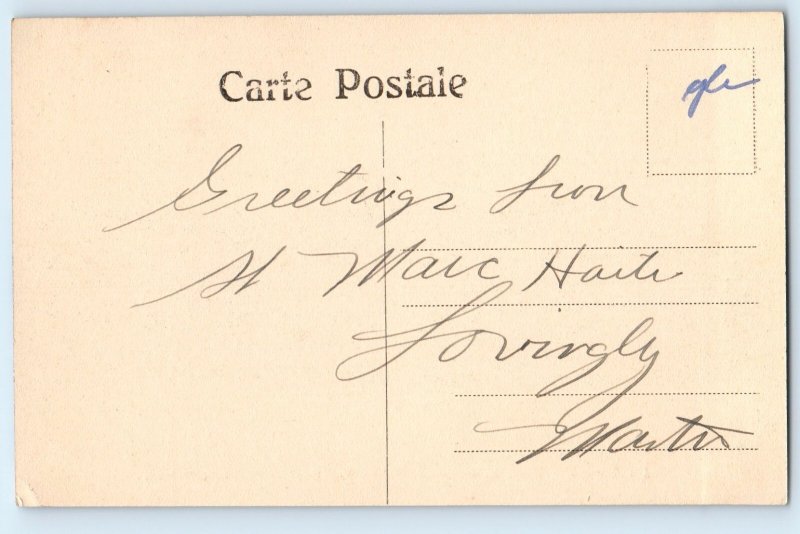 Carte Postale
Greetings from
St Marc Haiti
Lovingly
Martin